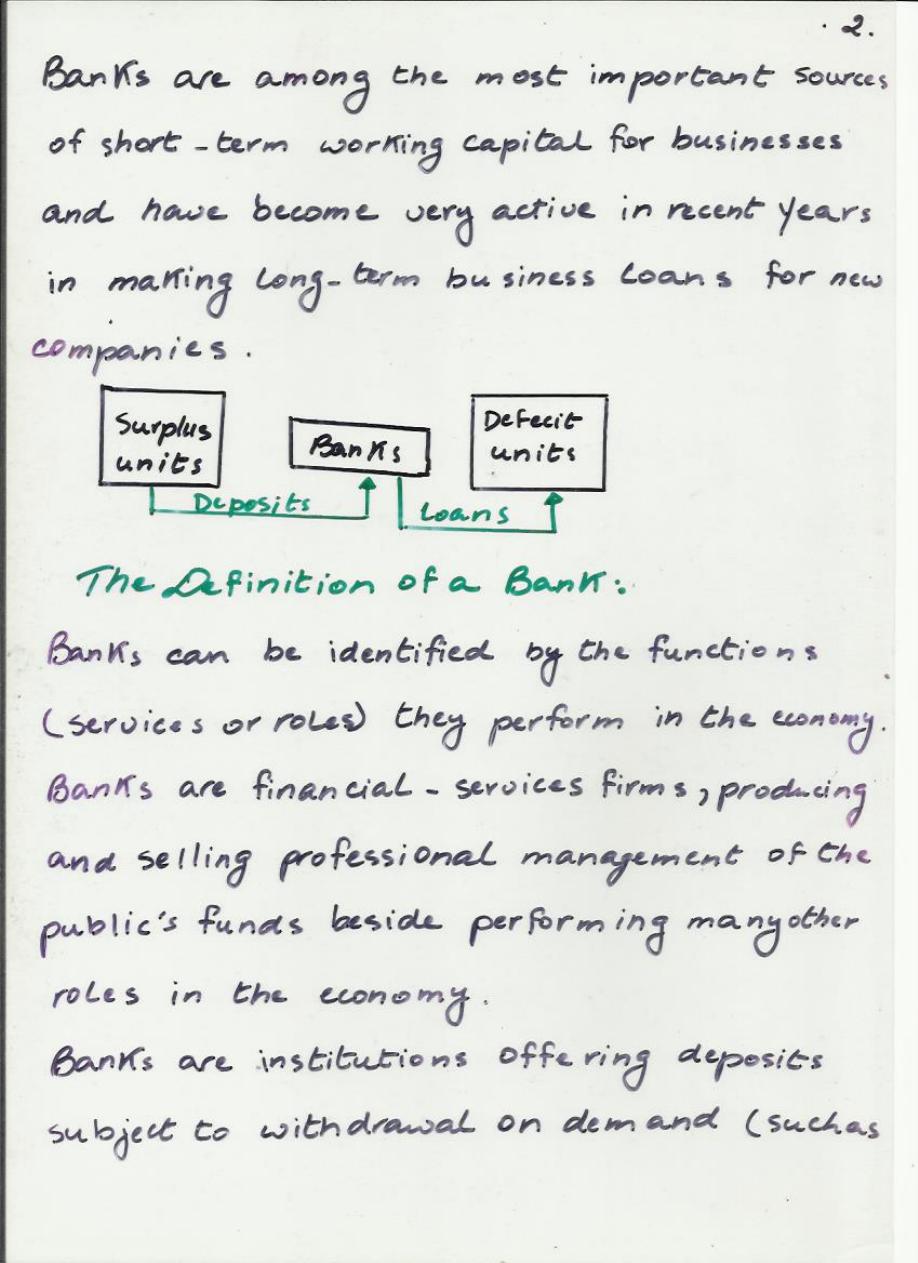 2.
Banks are among the most important sources
of short-term working capital for businesses
and have become very active in recent years
in making long-term business loans for new
companies.
Surplus
units
Banks
Defecit
units
Deposits
Loans
The Definition of a Bank:
Banks can be identified by the functions
(services or roles) they perform in the economy.
Banks are financial-services firms, producing
and selling professional management of the
public's funds beside performing many other
roles in the economy.
Banks are institutions offering deposits
subject to withdrawal on demand (such as